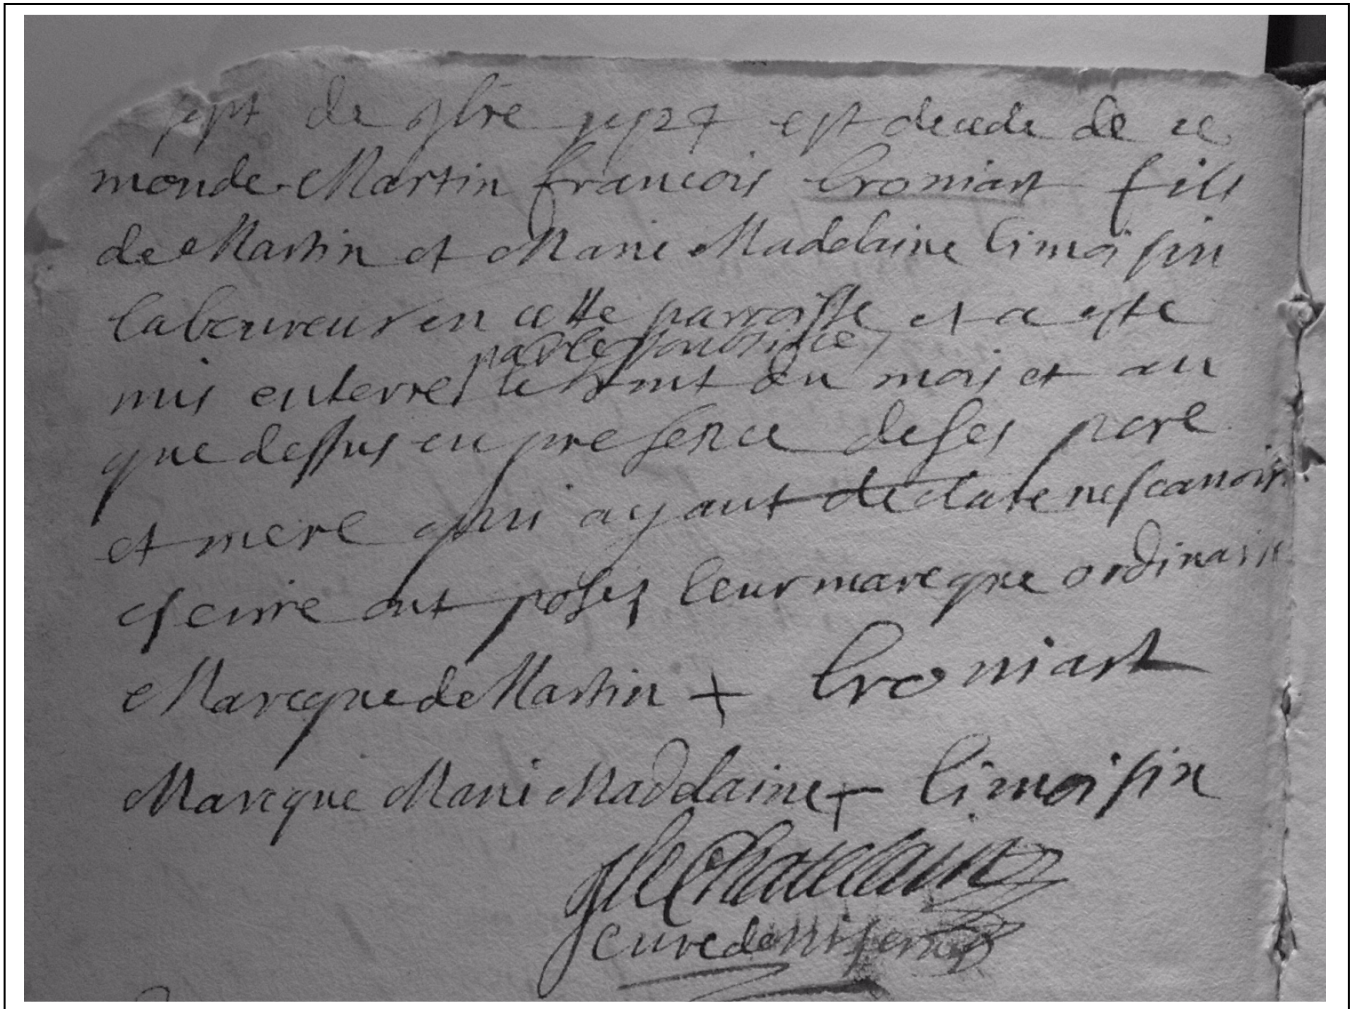 sept de 9bre 1727 est decede de ce
monde Martin francois Croniart fils
de Martin et Marie Madelaine limoisin
laboureur en cette parroisse et a este
par le soubsigne
mis en terre le huit du mois et an
que dessus en presence de ses pere
et mere qui ayant declare ne scavoir
escrire ont posez leur marcque ordinaire
Marcque de Martin + Croniart
Marcque Marie Madelaine + limoisin
Le Chatelain
cure de